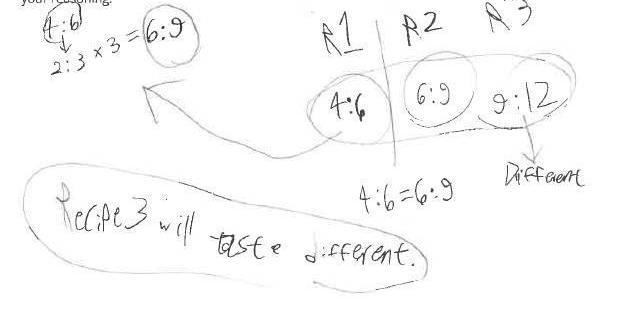 your reasoning.
4:6
2:3 × 3 = 6:9
R1 R2 R3
4:6 6:9 9:12
Different
4:6=6:9
Recipe 3 will taste different.